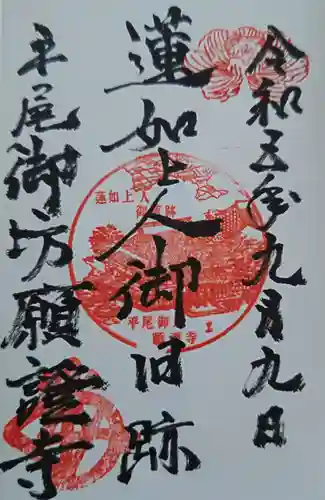 令和五年九月九日
蓮如上人御旧跡
平尾御坊願證寺
蓮如上人
御旧跡
平尾御坊
願證寺